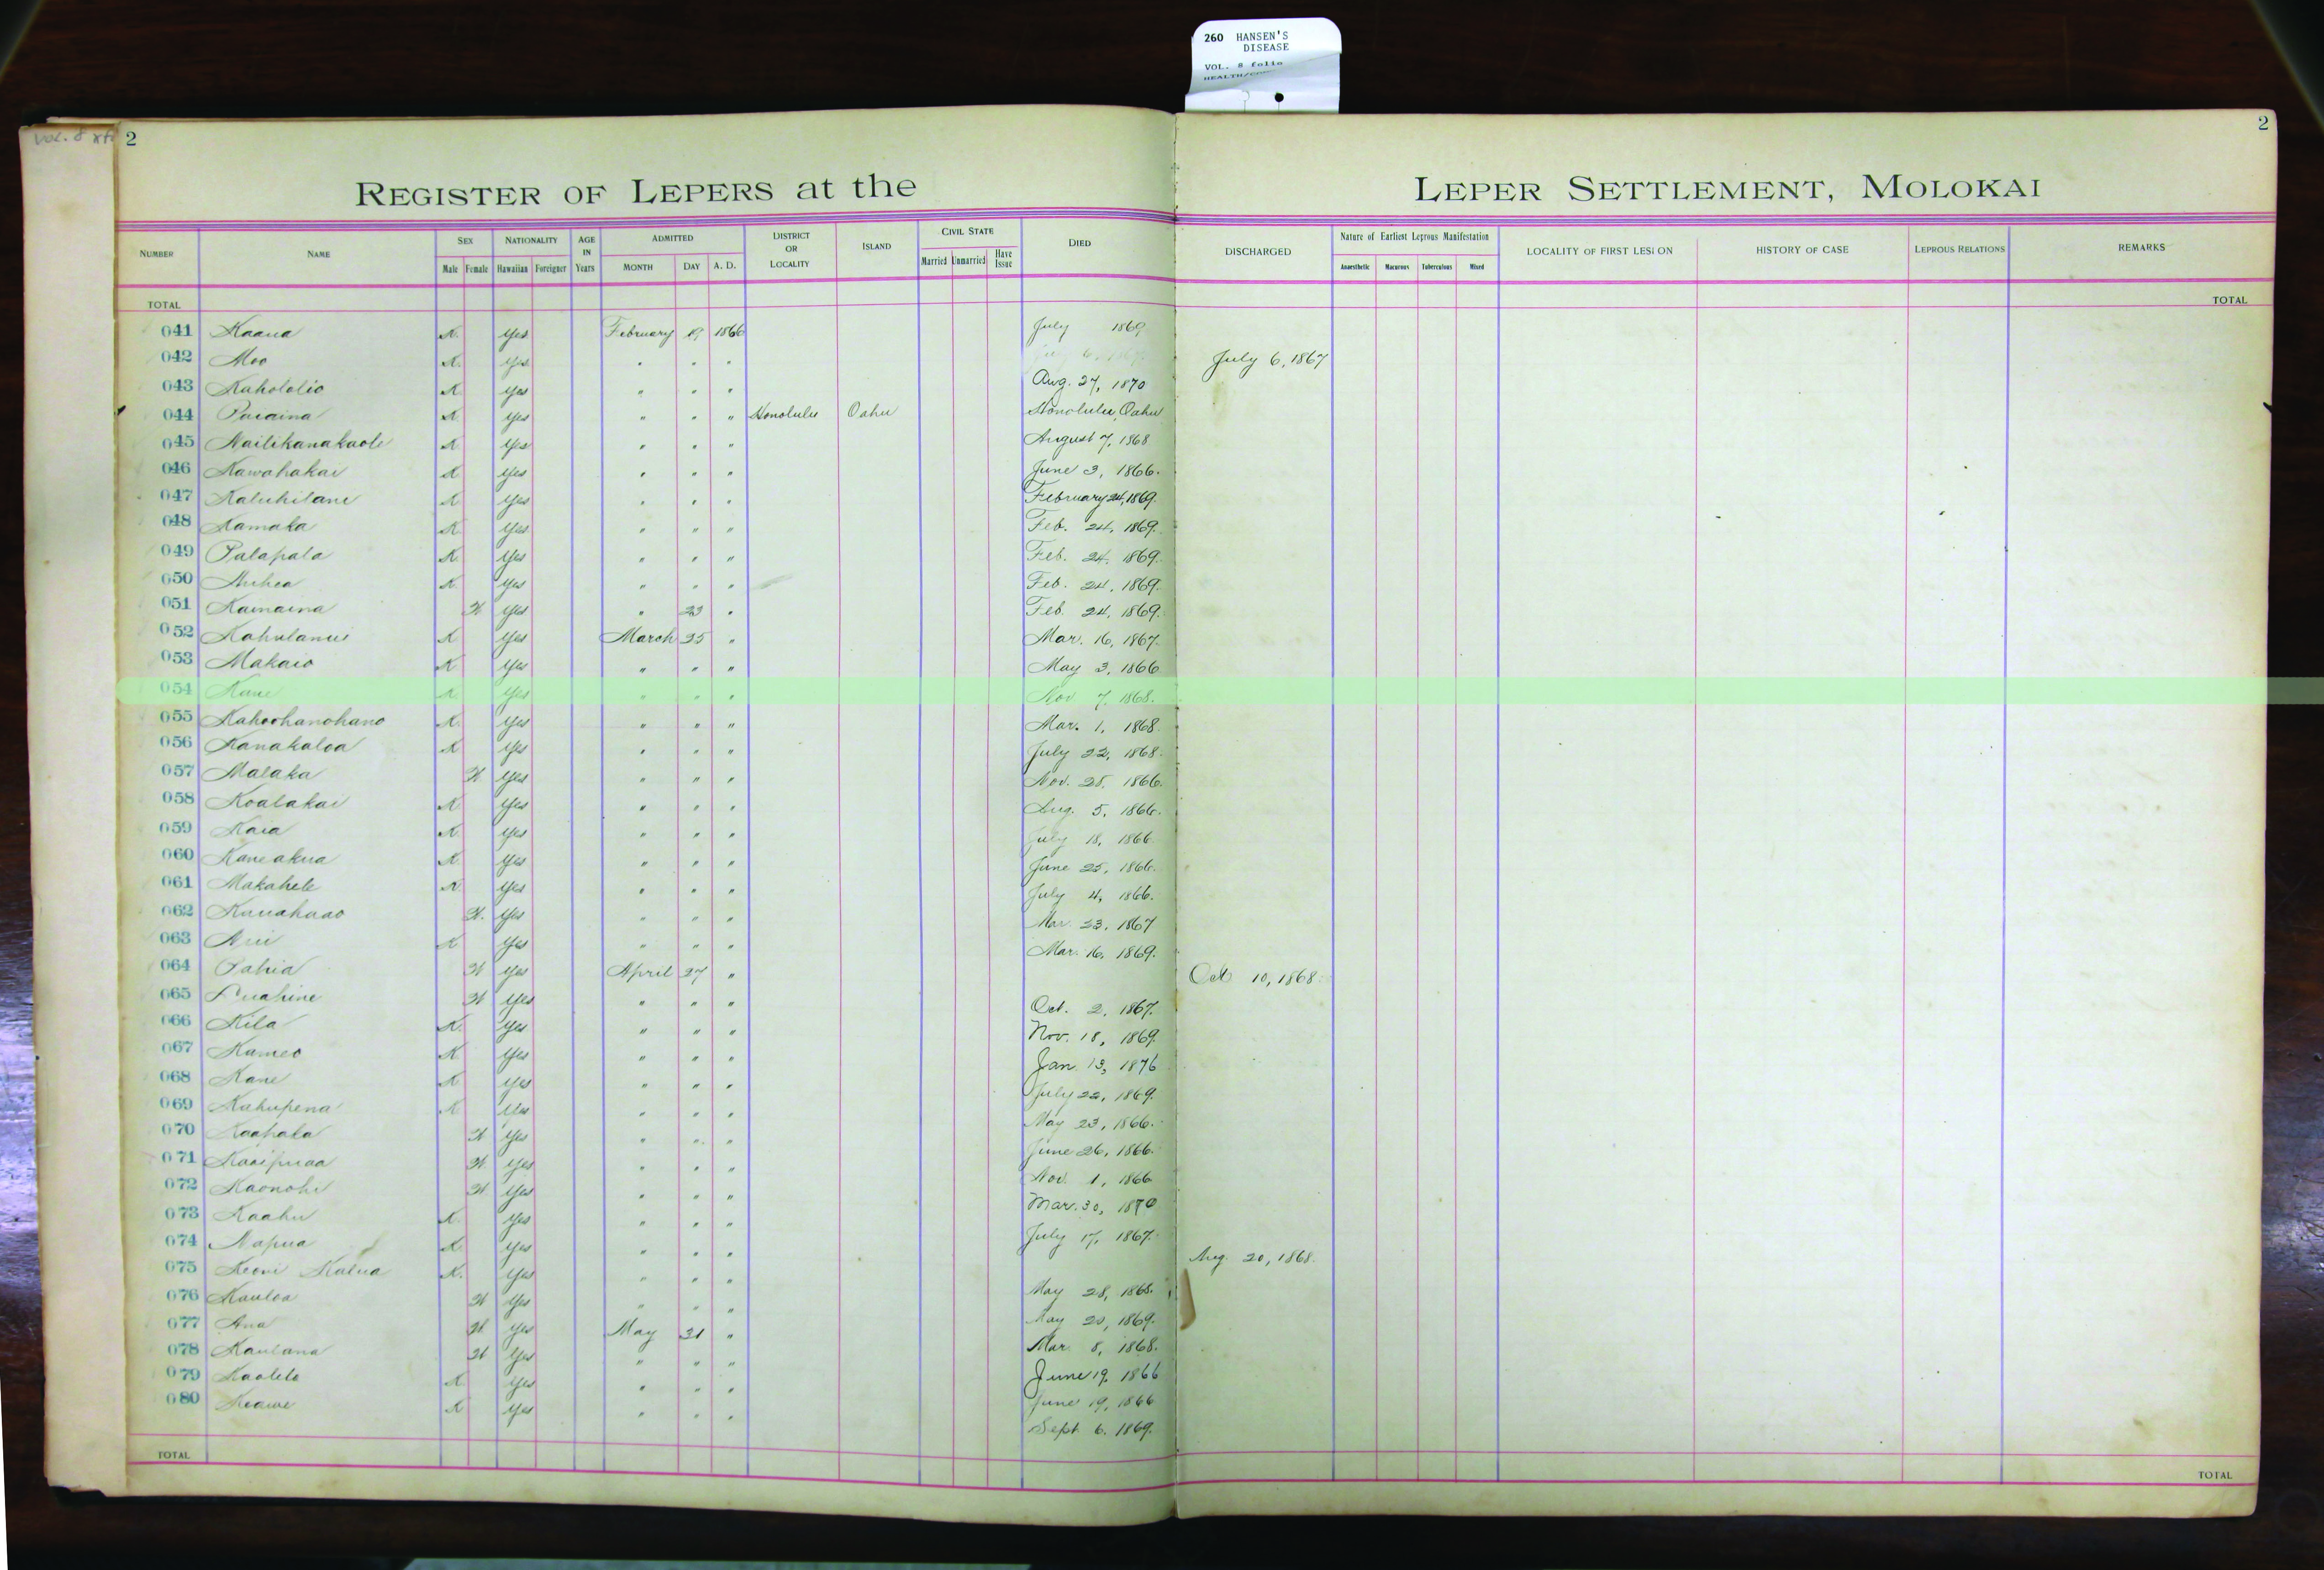 260 HANSEN'S
DISEASE
VOL. 8 folio
Vol. 8
2
2
REGISTER OF LEPERS at the LEPER SETTLEMENT, MOLOKAI
NUMBER NAME SEX Male Female NATIONALITY Hawaiian Foreigner AGE IN Years ADMITTED MONTH DAY A. D. DISTRICT OR LOCALITY ISLAND CIVIL STATE Married Unmarried Have Issue DIED DISCHARGED Nature of Earliest Leprous Manifestation Anaesthetic Macurous Tuberculous Mixed LOCALITY OF FIRST LESION HISTORY OF CASE LEPROUS RELATIONS REMARKS
TOTAL TOTAL
041 Kaaua K. Yes February 19 1866 July 1869
042 Moo K. Yes " " " July 6, 1867
043 Kahololio K Yes " " " Aug. 27, 1870
044 K Yes " " " Honolulu Oahu Honolulu, Oahu
045 Nailikanakaole K Yes " " " August 7, 1868
046 Kawahakai K Yes " " " June 3, 1866.
047 Kaluhilani K Yes " " " February 24, 1869.
048 Kamaka K Yes " " " Feb. 24, 1869.
049 Palapala K. Yes " " " Feb. 24, 1869.
050 K. Yes " " " Feb. 24, 1869.
051 Kamaina W. Yes " 23 " Feb. 24, 1869.
052 Kahulanui K Yes March 25 " Mar. 16, 1867.
053 Makaio K Yes " " " May 3, 1866
054 Kane K Yes " " " Nov. 7, 1868.
055 Kahoohanohano K. Yes " " " Mar. 1, 1868.
056 Kanakaloa K Yes " " " July 22, 1868.
057 Malaka W Yes " " " Nov. 28, 1866.
058 Koalakai K Yes " " " Aug. 5, 1866.
059 Kaia K. Yes " " " July 18, 1866.
060 Kaneakua K Yes " " " June 25, 1866.
061 Makahele K Yes " " " July 4, 1866.
062 Kauahaao W. Yes " " " Mar. 23, 1867
063 K Yes " " " Mar. 16, 1869.
064 Pahia W Yes April 27 " Oct 10, 1868.
065 Luahine W Yes " " " Oct. 2, 1867.
066 Kila K. Yes " " " Nov. 18, 1869.
067 Kameo K Yes " " " Jan. 13, 1876
068 Kane K Yes " " " July 22, 1869.
069 Kahupena K Yes " " " May 23, 1866.
070 Kaahala W Yes " " " June 26, 1866.
071 Kaaipuaa W. Yes " " " Nov. 1, 1866
072 Kaonohi W Yes " " " Mar. 30, 1870
073 Kaahu K. Yes " " " July 17, 1867.
074 Napua K Yes " " " Aug. 20, 1868.
075 Keoni Kalua K. Yes " " " May 28, 1868.
076 Kauloa W Yes " " " May 20, 1869.
077 Ana W. Yes May 31 " Mar. 8, 1868.
078 Kaulana W Yes " " " June 19, 1866
079 Kaolelo K Yes " " " June 19, 1866
080 Keawe K Yes " " " Sept. 6, 1869.
TOTAL TOTAL